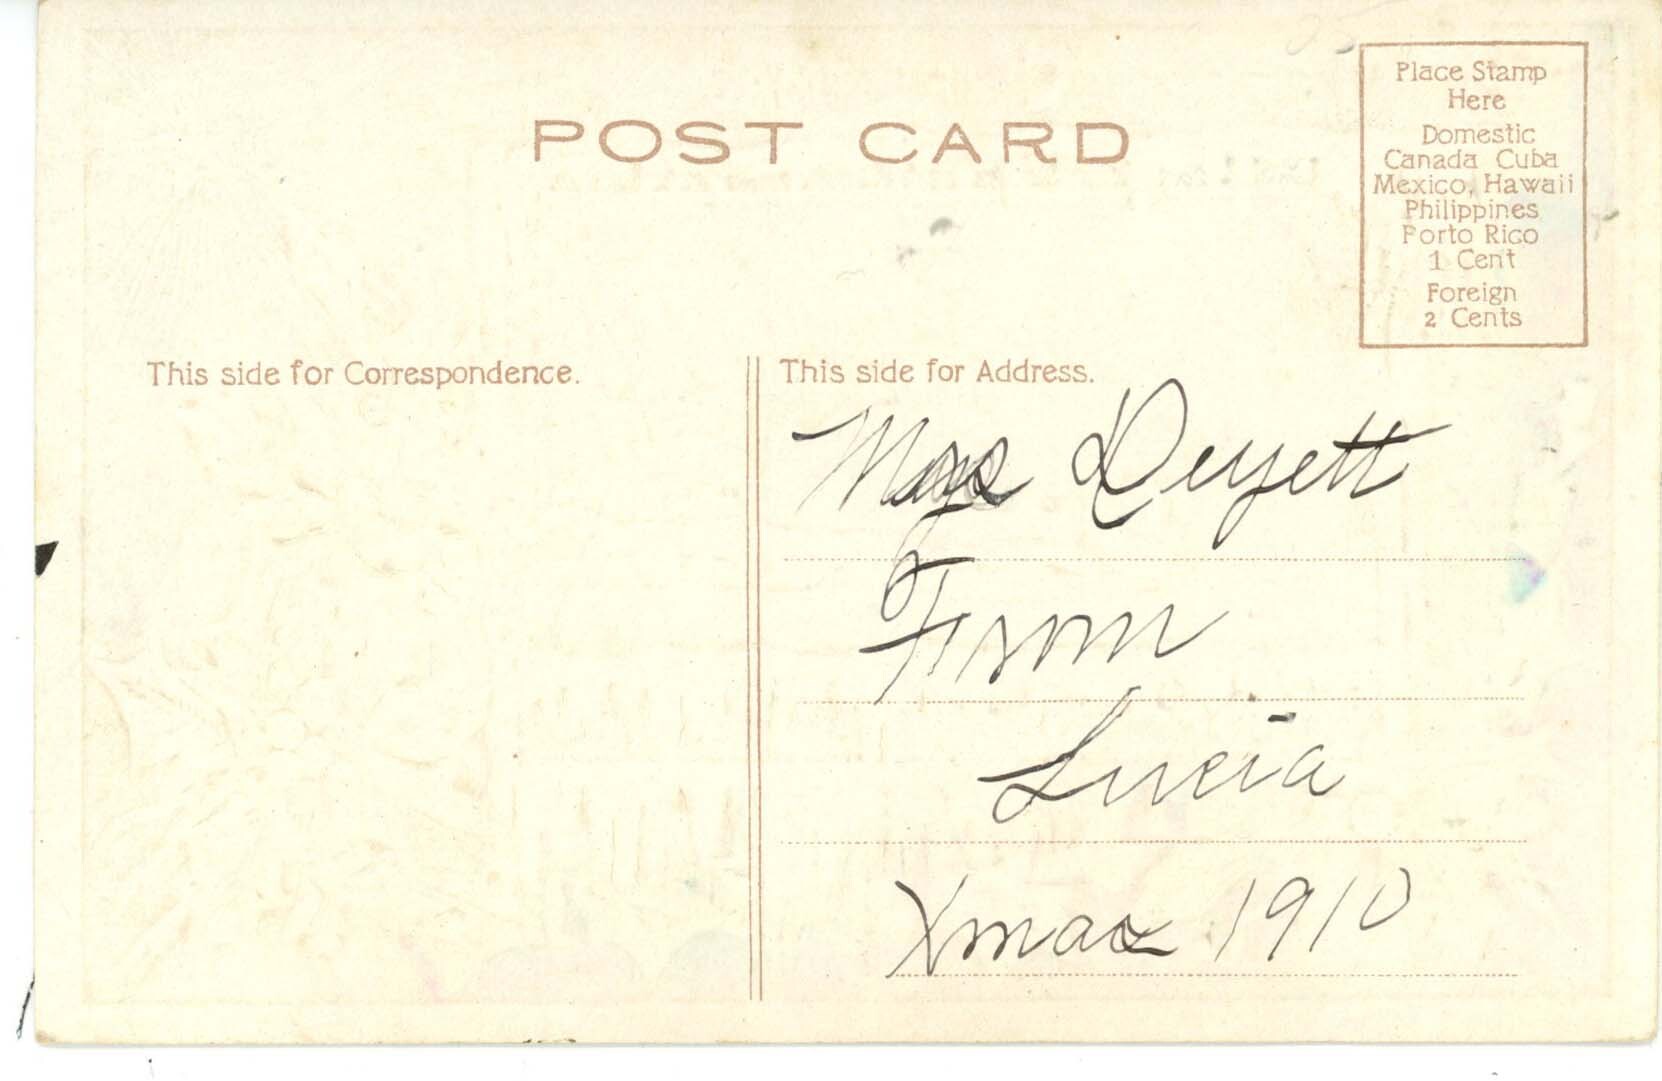 POST CARD
Place Stamp
Here
Domestic
Canada Cuba
Mexico, Hawaii
Philippines
Porto Rico
1 Cent
Foreign
2 Cents
This side for Correspondence.
This side for Address.
Deyett
From
Lucia
Xmas 1910